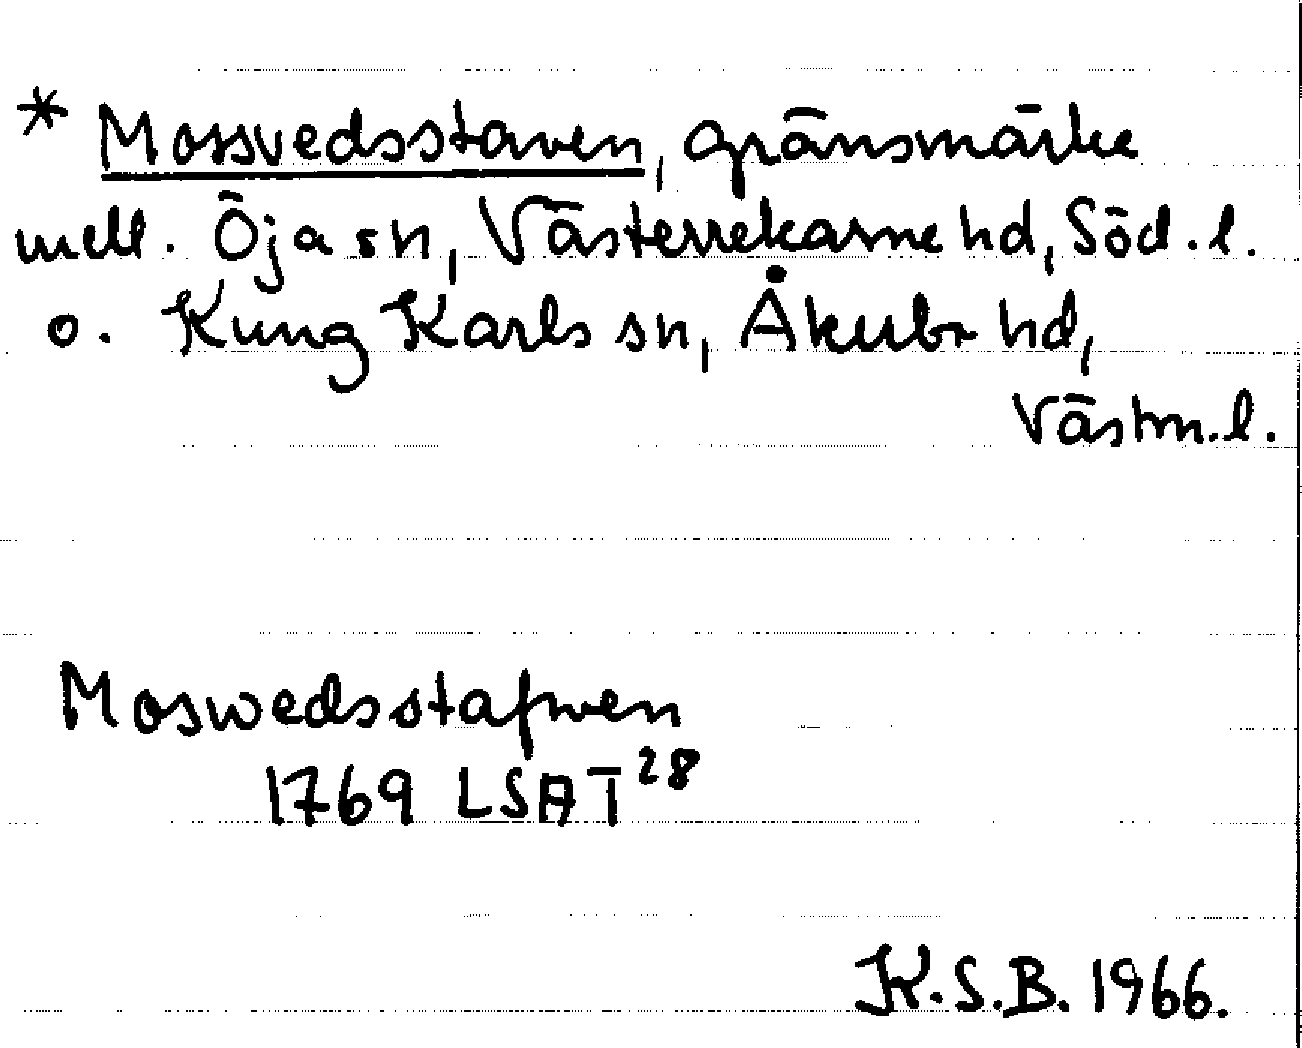 * Mossvedsstaven, gränsmärke
mell. Öja sn, Västerrekarne hd, Söd. l.
o. Kung Karls sn, Åkerbo hd,
Västm. l.
Moswedsstafwen
1769 LSA T 28
K.S.B. 1966.